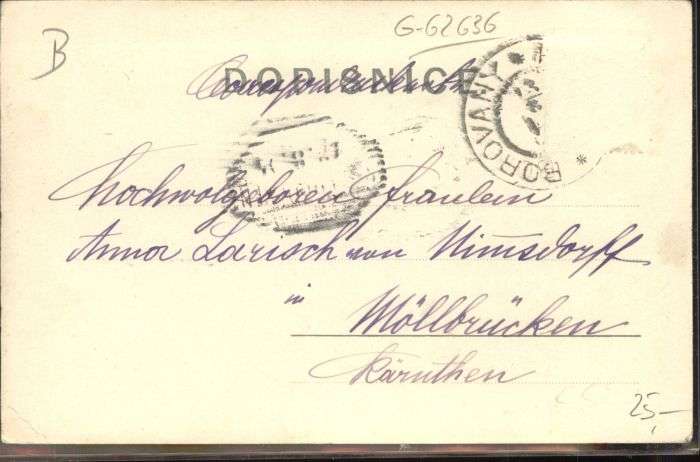 G-62636
B
DOPISNICE
BOROVANY
Hochwolgeboren Fräulein
Anna Larisch von Nimsdorff
in
Möllbrücken
Kärnthen
25,-